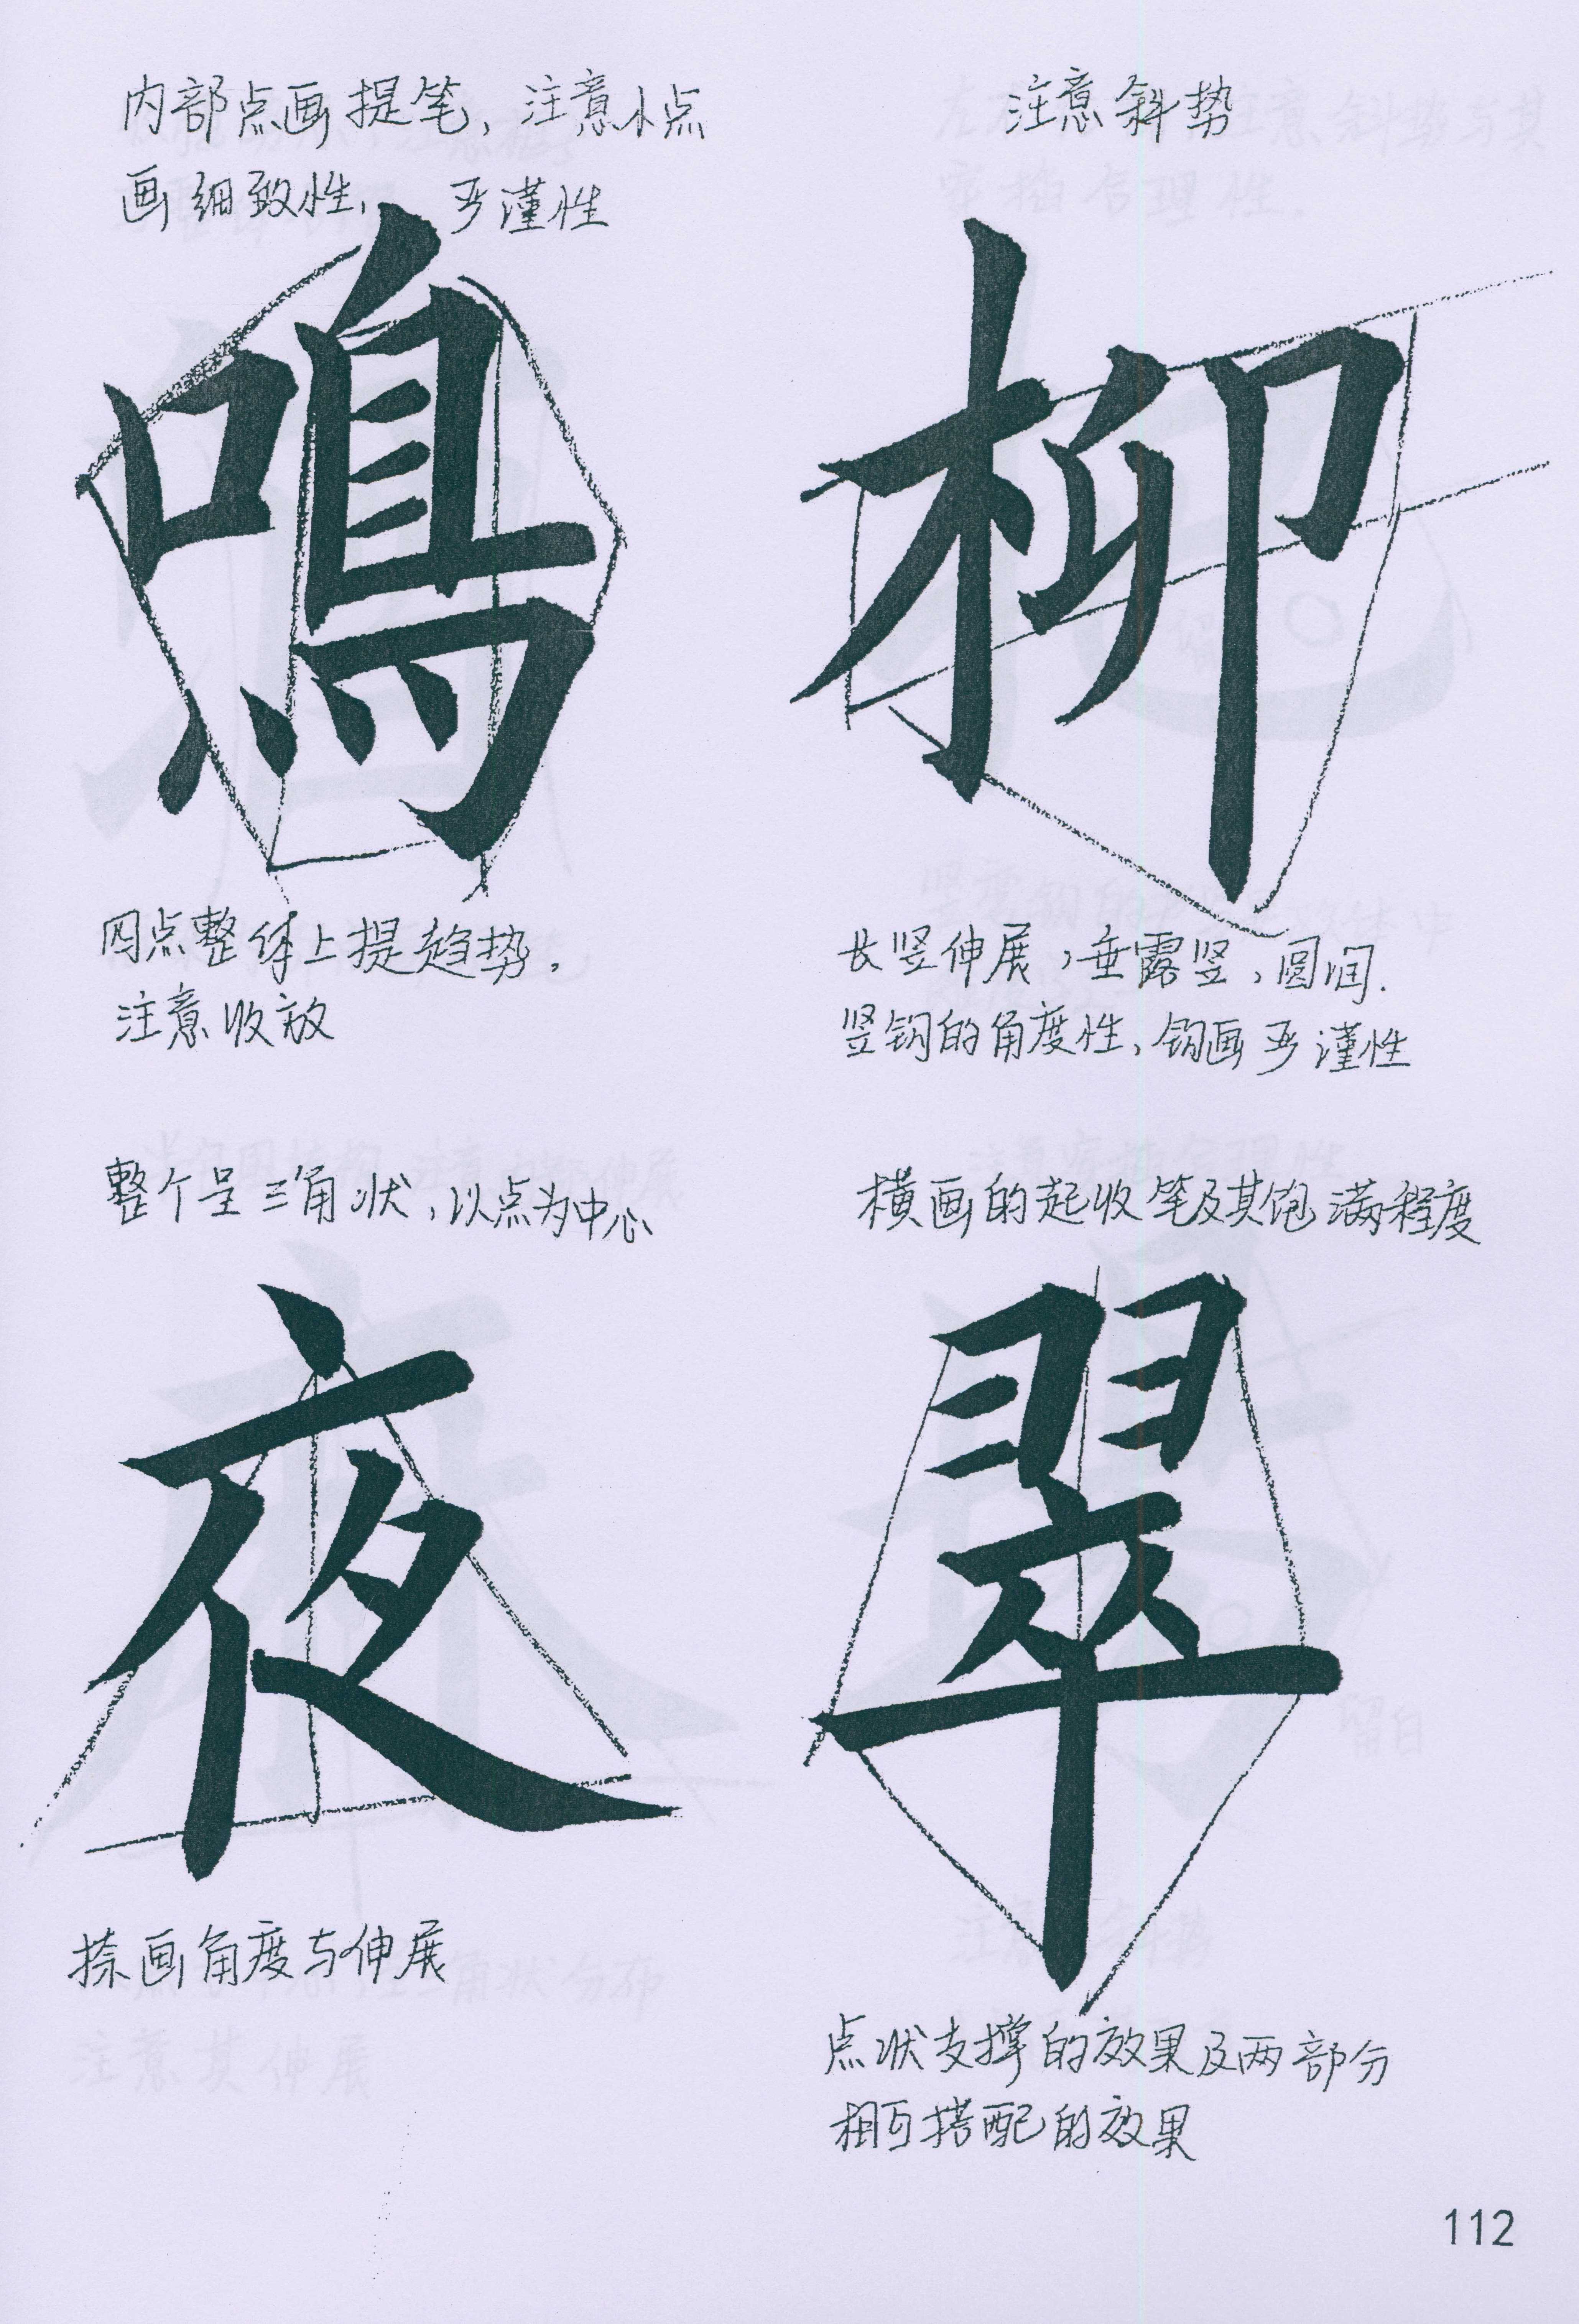 内部点画提笔，注意小点
画细致性，严谨性
鳴
四点整体上提趋势，
注意收放
注意斜势
柳
长竖伸展，垂露竖，圆润．
竖钩的角度性，钩画严谨性
整个呈三角状，以点为中心
夜
捺画角度与伸展
横画的起收笔及其饱满程度
翠
点状支撑的效果及两部分
相互搭配的效果
112